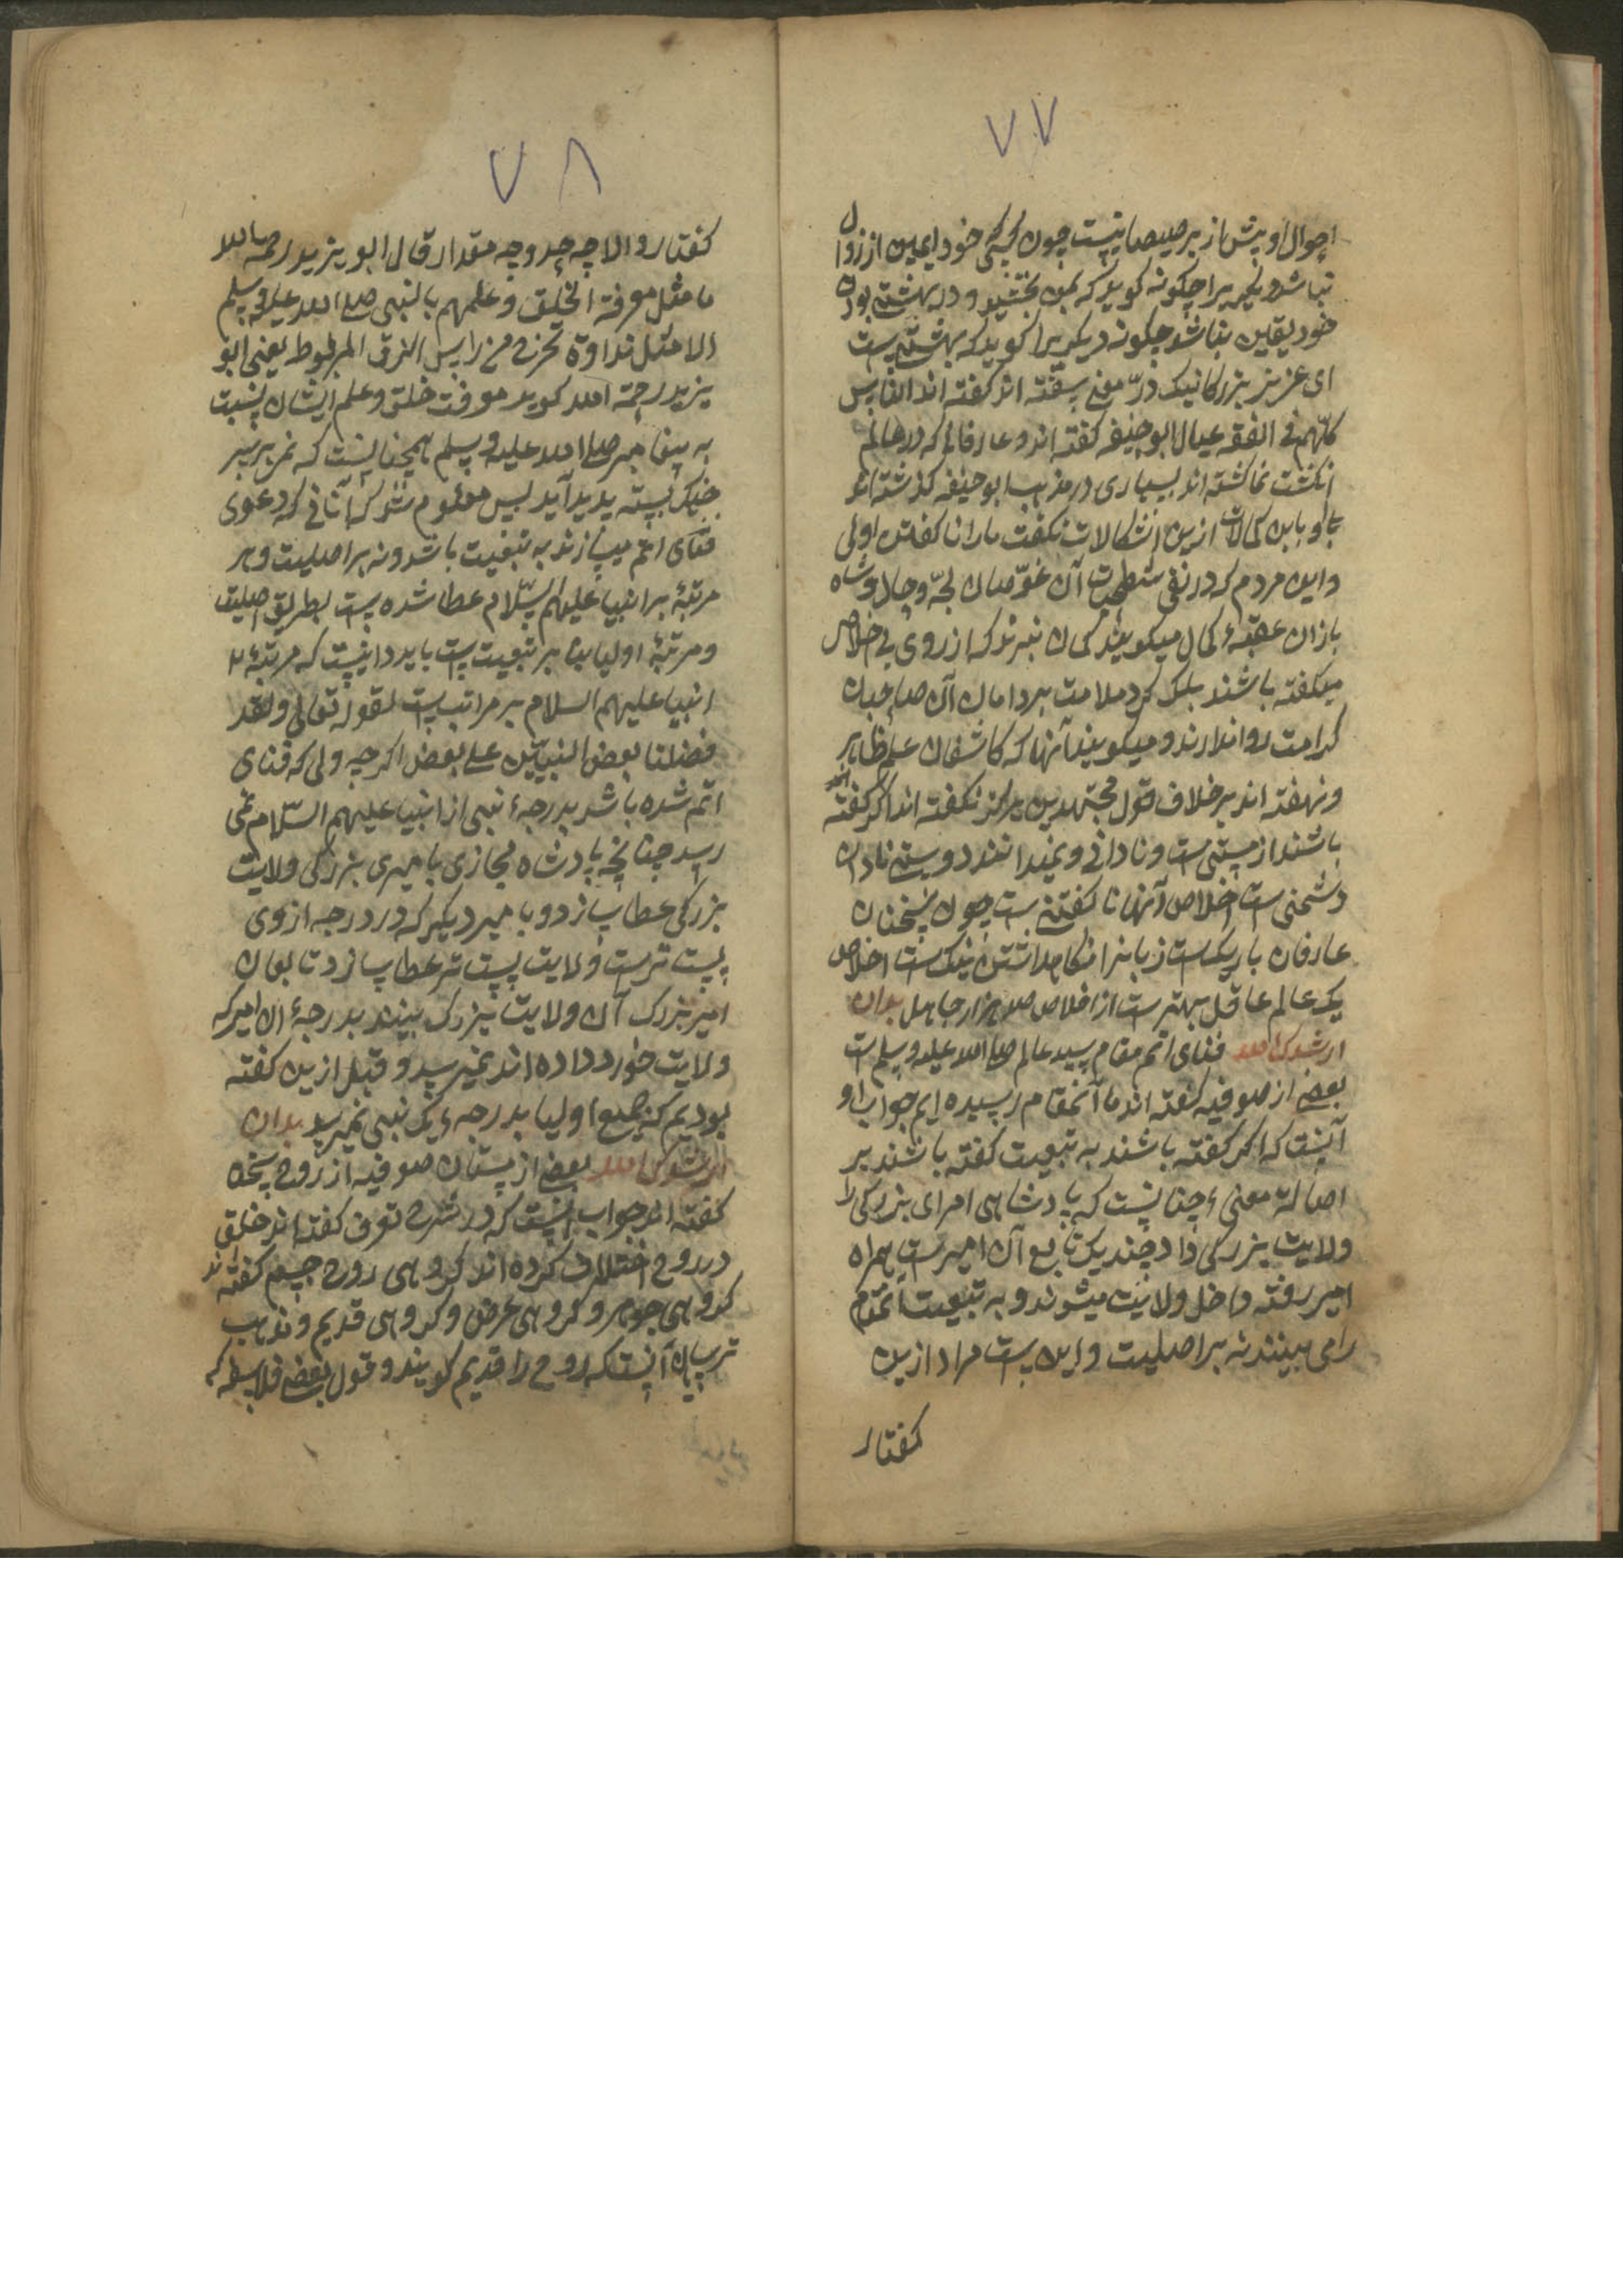 ۷۷
احوال او پیش از برصیصا نیست چون کسی خود ایمن از زوال
نباشد دیگریرا چگونه کوید که بمن بخشید و در بهشتی بودن
خود یقین نباشد چکونه دیکریرا کوید که بهشتیست
ای عزیز بزرکانیک درّ معنی سفته اند کفته اند الناس
کلّهم فی الفقه عیال ابو حنیفه کفته اند و عارفانی که در عالم
انکشت نما کشته اند بسیاری در مذهب ابو حنیفه کذشته اند
با و باین کمالات ازین اشکالات نکفت ما را ناکفتن اولی
و این مردم که در نفی شطحیات آن غوّاصان لجّه و
بازان عقبهٔ کمال میکویند کمان نبرند که از روی بی اخلاص
میکفته باشند بلکه کرد ملامت بر دامان آن صاحبان
کرامت روا ندارند و میکویند آنها که کاشفان علم ظاهر
و نهفته اند بر خلاف قول مجتهدین هرکز نکفته اند اکر کفته
باشند از مستی ست و نادانی و نمیدانند دوستی نادان
دشمنی ست اخلاص آنها ناکفتن ست چون سخنان
عارفان باریکست زبانرا نکاهداشتن نیک ست اخلاص
یک عالم عاقل بهتر ست از اخلاص صد هزار جاهل بدان
ارشدک الله فنای اتم مقام سید عالم صلی الله علیه وسلم ست
بعضی از صوفیه کفته اند ما آنمقام رسیده ایم جواب او
آنست که اکر کفته باشند به تبعیت کفته باشند بر
اصالة معنی ء چنانست که پادشاهی امرای بزرکی را
ولایت بزرکی داد چندیک تابع آن امیر ست همراه
امیر رفته داخل ولایت میشوند و به تبعیت آنمقام
را می بینند نه بر اصلیت و این ست مراد ازین
کفتار
۷۸
کفتار و الا چه حد و چه مقدار قال ابو یزید رحمه الله
ما مثل معرفة الخلق و علمهم بالنبی صلی الله علیه وسلم
الا مثل نداوة تخرج من راس الزق المربوط یعنی ابو
یزید رحمة الله کوید معرفت خلق و علم ایشان بنسبت
به پیغامبر صلی الله علیه وسلم همچنانست که نمی بر سر
خیک بسته پدید آید پس معلوم شد که آنانی که دعوی
فنای اتم میسازند به تبعیت باشد و نه بر اصلیت و هر
مرتبهٔ بر انبیا علیهم السّلام عطا شده ست بطریق اصلیت
و مرتبهٔ اولیا بنا بر تبعیت ست باید دانست که مرتبهٔ
انبیا علیهم السلام بر مراتب ست لقوله تعالی ولقد
فضلنا بعض النبیّین علی بعض اکر چه ولی که فنای
اتم شده باشد بدرجهٔ نبی از انبیا علیهم السّلام نمی
رسد چنانچه پادشاه مجازی بامیری بزرکی ولایت
بزرکی عطا سازد و بامیر دیکر که در درجه از وی
پست ترست ولایت پست تر عطا سازد تابعان
امیر بزرک آن ولایت بزرک بینند بدرجهٔ ان امیر که
ولایت خورد داده اند نمیرسد و قبل ازین کفته
بودیم که جمیع اولیا بدرجهء یک نبی نمیرسد بدان
ارشدک الله بعضی از مستان صوفیه از روح سخن
کفته اند جواب انست که در شرح تعرف کفته اند خلق
در روح اختلاف کرده اند کروهی روح جسم کفته اند
کروهی جوهر و کروهی عرض و کروهی قدیم و مذهب
ترسایان آنست که روح را قدیم کویند و قول بعضی فلاسفه که